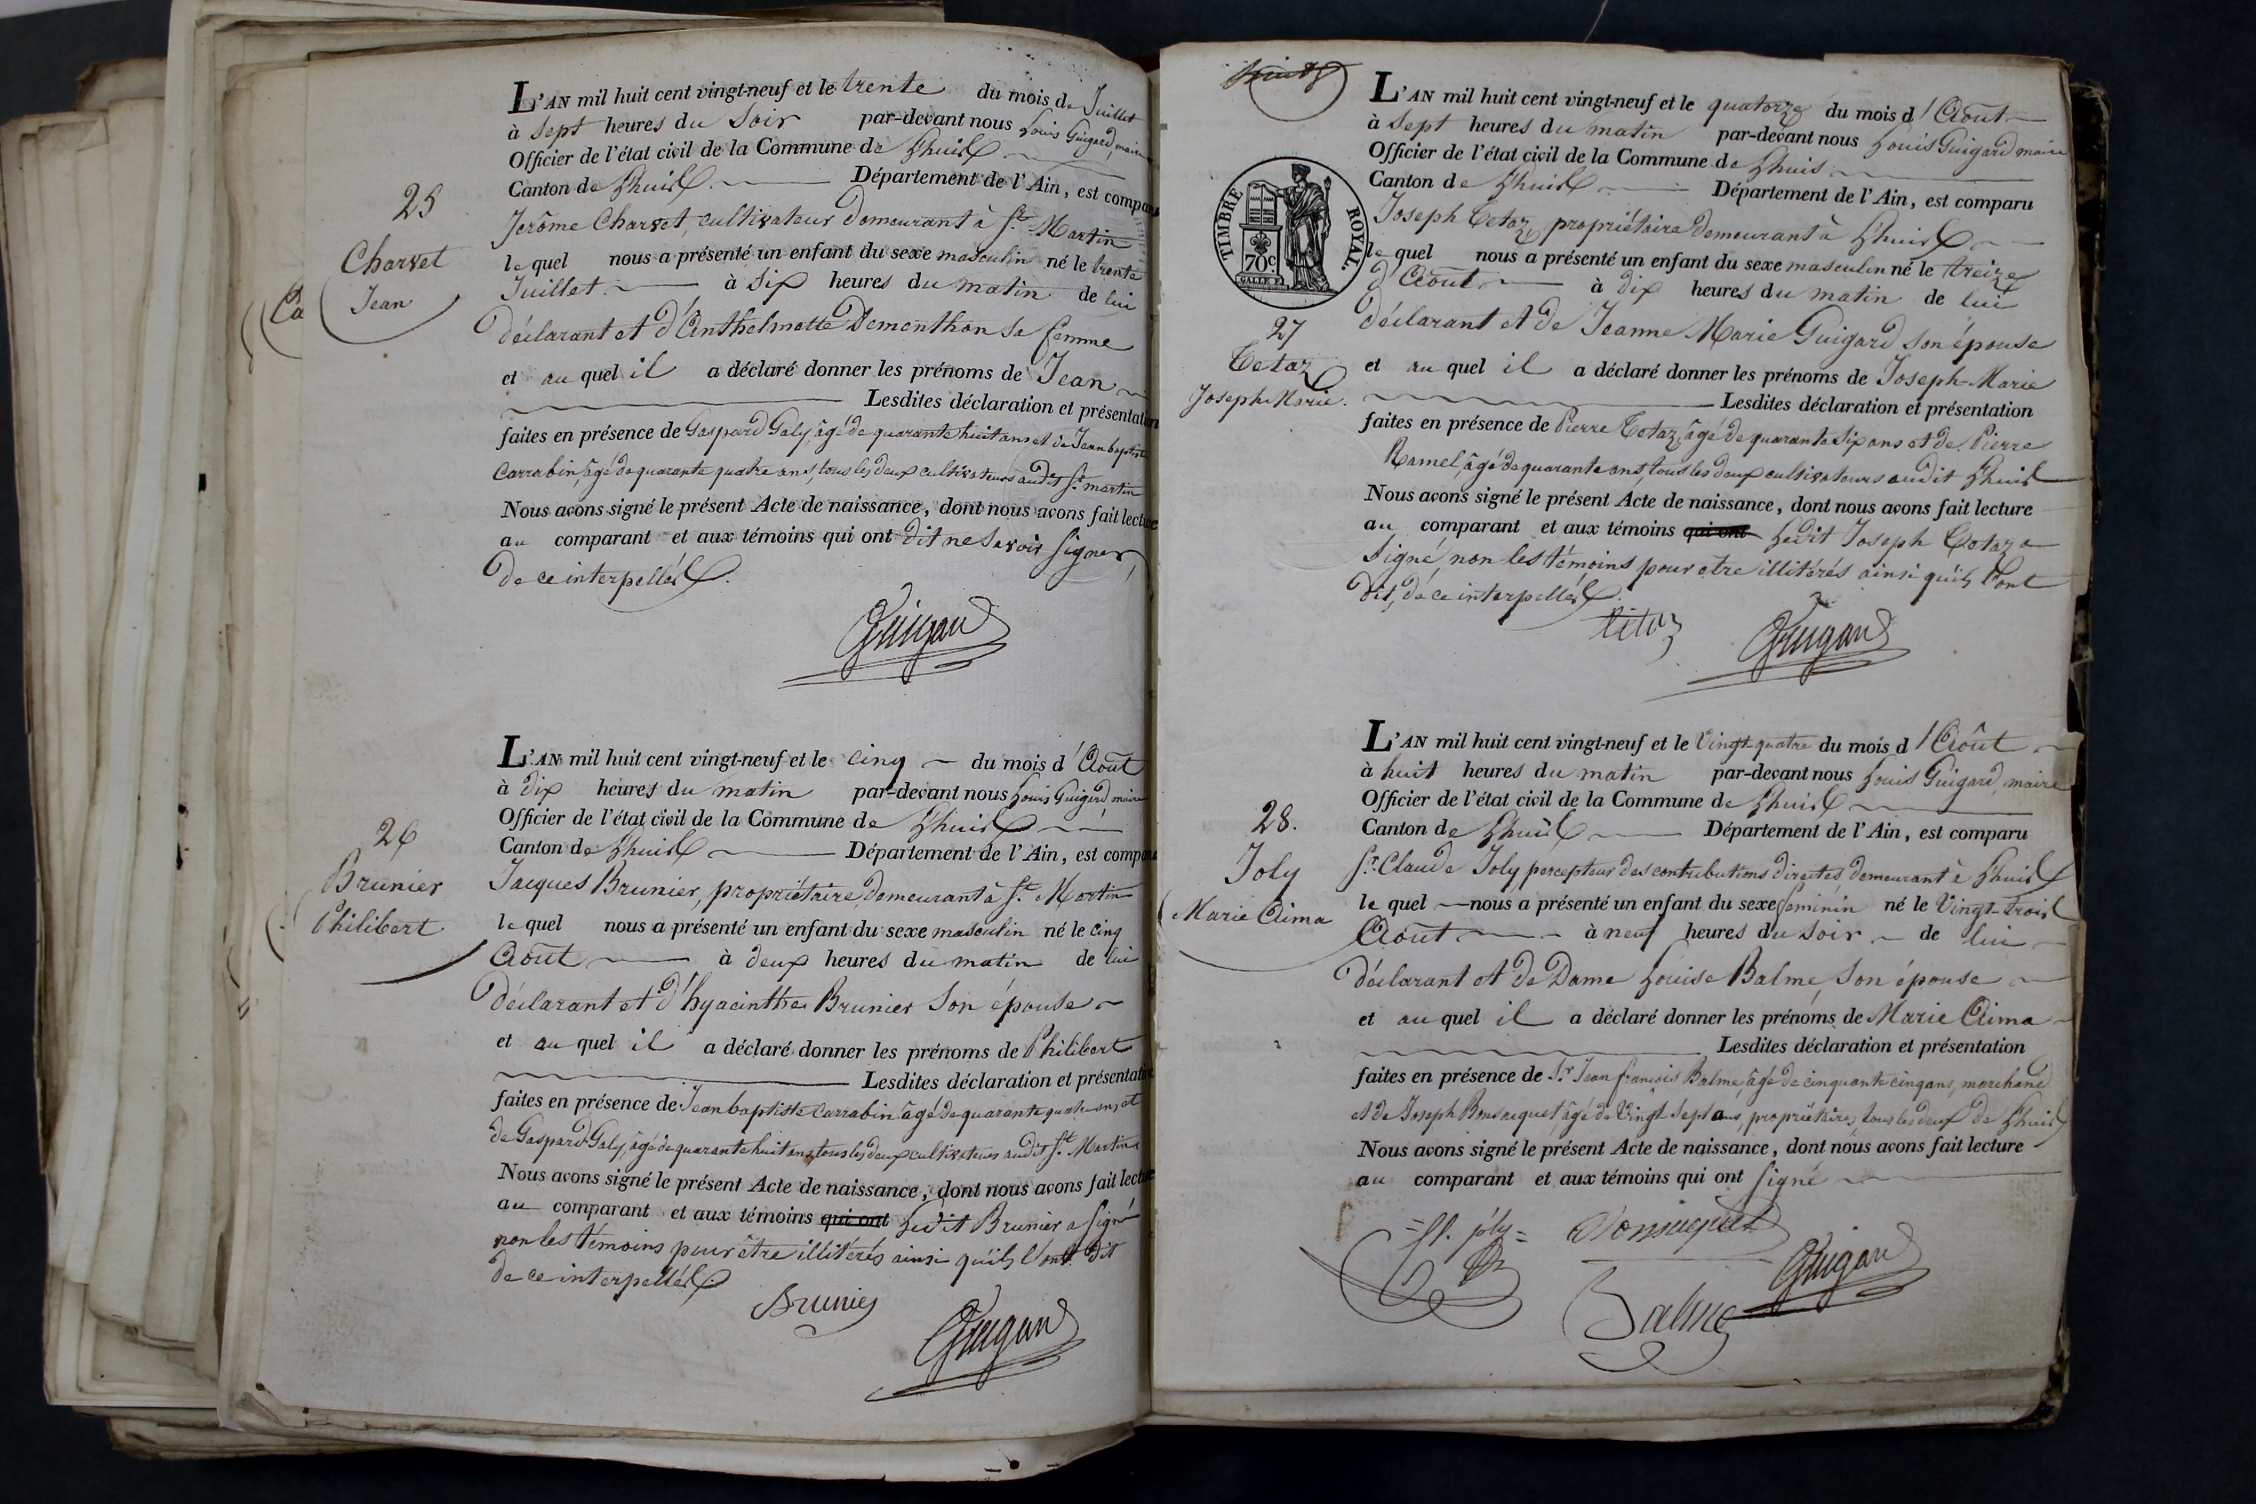 L'AN mil huit cent vingt-neuf et le trente du mois de Juillet
à sept heures du soir par-devant nous Louis Guigard, maire
Officier de l'état civil de la Commune de Lhuis
Canton de Lhuis Département de l'Ain, est comparu
25
Charvet
Jean
Jerôme Charvet, cultivateur demeurant à St. Martin
lequel nous a présenté un enfant du sexe masculin né le trente
Juillet à six heures du matin de lui
déclarant et d'Anthelmette Dementhon sa femme
et au quel il a déclaré donner les prénoms de Jean
Lesdites déclaration et présentation
faites en présence de Gaspard Galy, âgé de quarante huit ans et de Jean baptiste
Carrabin, âgé de quarante quatre ans, tous les deux cultivateurs audit St. martin
Nous avons signé le présent Acte de naissance, dont nous avons fait lecture
au comparant et aux témoins qui ont dit ne savoir signer,
de ce interpellés.
Guigard
L'AN mil huit cent vingt-neuf et le cinq du mois d'Août
à dix heures du matin par-devant nous Louis Guigard, maire
Officier de l'état civil de la Commune de Lhuis
Canton de Lhuis Département de l'Ain, est comparu
26
Brunier
Philibert
Jacques Brunier, propriétaire demeurant à St. Martin
lequel nous a présenté un enfant du sexe masculin né le cinq
Août à deux heures du matin de lui
déclarant et d'hyacinthe Brunier son épouse
et au quel il a déclaré donner les prénoms de Philibert
Lesdites déclaration et présentation
faites en présence de Jean baptiste Carrabin âgé de quarante quatre ans et
de Gaspard Galy, âgé de quarante huit ans tous les deux cultivateurs audit St. Martin
Nous avons signé le présent Acte de naissance, dont nous avons fait lecture
au comparant et aux témoins qui ont Ledit Brunier a signé
non les témoins pour être illitérés ainsi qu'ils l'ont dit
de ce interpellés.
Brunier
Guigard
L'AN mil huit cent vingt-neuf et le quatorze du mois d'Août
à sept heures du matin par-devant nous Louis Guigard maire
Officier de l'état civil de la Commune de Lhuis
Canton de Lhuis Département de l'Ain, est comparu
TIMBRE ROYAL.
70 c.
27
Tetaz
Joseph-Marie.
Joseph Tetaz, propriétaire demeurant à Lhuis
lequel nous a présenté un enfant du sexe masculin né le treize
d'Août à dix heures du matin de lui
déclarant et de Jeanne Marie Guigard son épouse
et au quel il a déclaré donner les prénoms de Joseph-Marie
Lesdites déclaration et présentation
faites en présence de Pierre Tetaz, âgé de quarante six ans et de Pierre
Ramel, âgé de quarante ans, tous les deux cultivateurs audit Lhuis
Nous avons signé le présent Acte de naissance, dont nous avons fait lecture
au comparant et aux témoins qui ont Ledit Joseph Tetaz a
signé non les témoins pour etre illitérés ainsi qu'ils l'ont
dit, de ce interpellés.
titaz
Guigard
L'AN mil huit cent vingt-neuf et le vingt-quatre du mois d'Août
à huit heures du matin par-devant nous Louis Guigard, maire
Officier de l'état civil de la Commune de Lhuis
Canton de Lhuis Département de l'Ain, est comparu
28.
Joly
Marie Aima
Sr. Claude Joly percepteur des contributions directes demeurant à Lhuis
lequel nous a présenté un enfant du sexe feminin né le vingt-trois
Août à neuf heures du soir de lui
déclarant et de Dame Louise Balme, son épouse
et au quel il a déclaré donner les prénoms de Marie Aima
Lesdites déclaration et présentation
faites en présence de Sr. Jean françois Balme, âgé de cinquante cinq ans, marchand
et de Joseph Bonsacquet, âgé de vingt sept ans, propriétaire, tous les deux de Lhuis
Nous avons signé le présent Acte de naissance, dont nous avons fait lecture
au comparant et aux témoins qui ont signé
Guigard
Balme